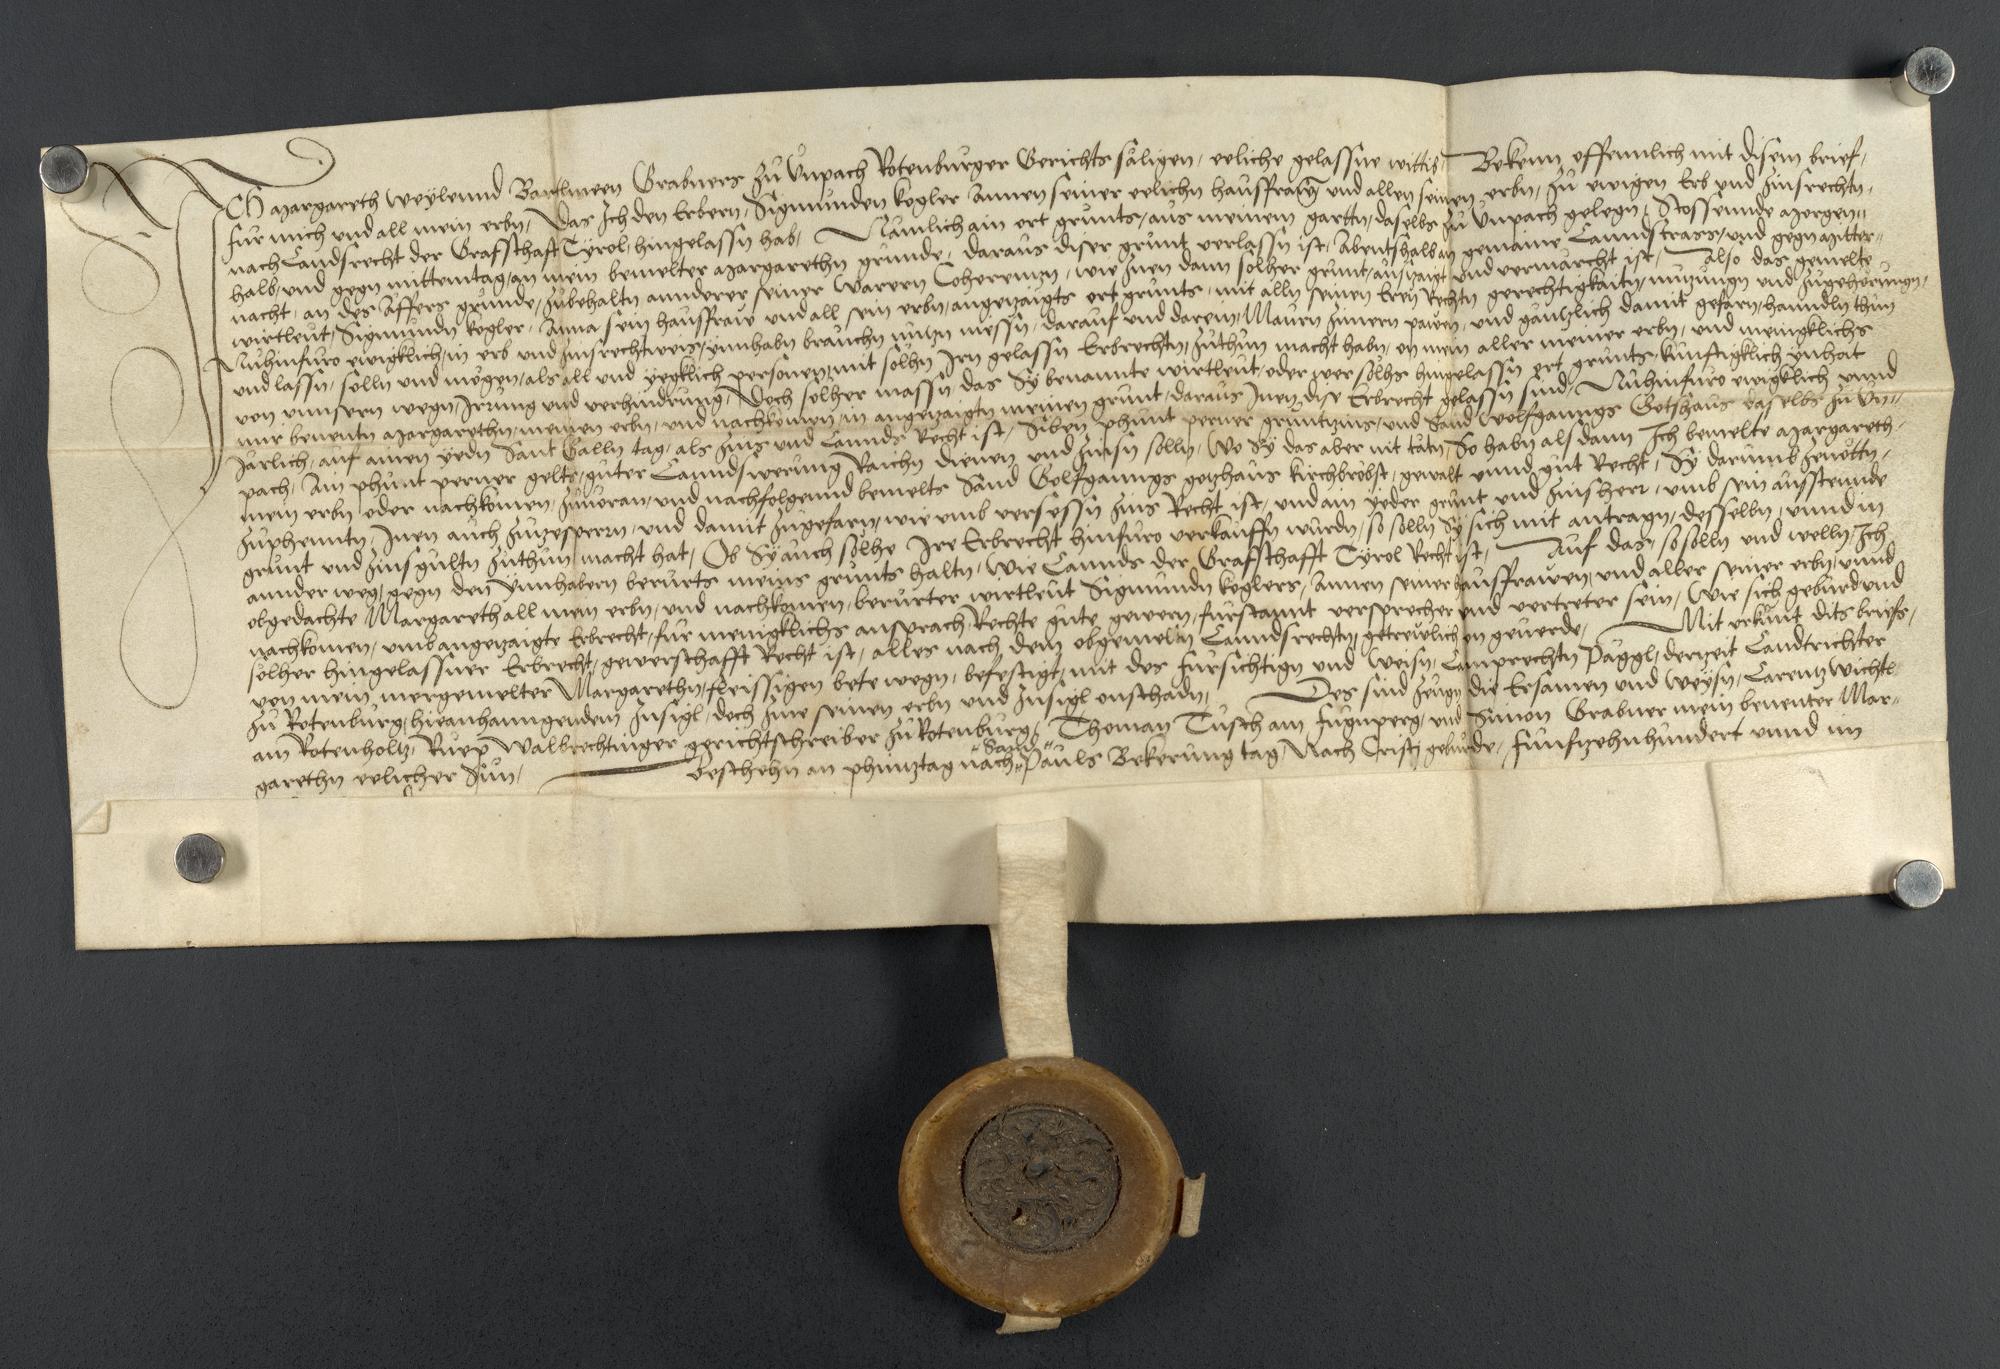 Ich Margareth Weylennd Bartlmeen Grabners zu Ünpach Rotenburger Gerichts säligen, eeliche gelassne wittib, Bekenn offennlich mit disem brief,
für mich und all mein erbn, Das Ich den Erbern, Sigmunden Kogler, Annen seiner eelichn hausfrawen und allen seinen erbn, zu ewigen Erb und zinsrechtn,
nach Landsrecht der Grafschaft Tyrol, hingelassn hab, Nämlich ain ort grunts, aus meinem gartn, daselbs zu Ünpach gelegn, Stossennde Morgen-
halb, und gegn mittemtag, an mein bemelter Margarethn grunde, daraus diser grunt verlassn ist, Abentshalb an gemaine Lanndstrass, und gegn Mitter-
nacht, an des Affers grunde, zubehaltn annderer seiner warern Coherennzn, wie Inen dann solher grunt, anzaigt und vermarcht ist, Also das gemelte
wirtleut, Sigmundn Kogler, Anna sein hausfraw und all sein erbn, angezaigts ort grunts, mit alln seinen Eren Rechtn gerechtigkaitn, nutzungn und zugehörungn,
Nuhinfuro ewigklich, in erb und zinsrechtweis, Ynnhabn brauchn nutzn niessn, darauf und darein, Maurn zimern pawen, und gäntzlich damit gefarn, hanndln thun
und lassn, solln und mögen, als all und yegklich personen, mit solhn Irn gelassn Erbrechtn, zuthun macht habn, on mein aller meiner erbn, und menigklichs
von unnsern wegn, Irrung und verhindrung, Doch solher massn, das Sy benannte wirtleut, oder wer solhs hingelassn ort grunts, kunftigklich ynhat
mir benentn Margarethn, meinen erbn, und nachkomen, in angezaigtn meinen grunt, daraus Inen dise Erbrecht gelassn sind, Nuhinfuro ewigklich unnd
Järlich, auf ainen yedn Sant Galln tag, als zins und Lannds Recht ist, Siben phunt perner gruntzins, und Sand Wolfgangs Gotshaus daselbs zu Ün-
pach, Am phunt perner gelts, guter Lanndswerung Raichn dienen und zinsn solln, Wo Sy das aber nit tätn, So habn alsdann Ich bemelte Margareth,
mein erbn oder nachkomen, zuvoran, und nachfolgennd bemelts Sand Wolfganngs gotzhaus kirchbröbst, gewalt unnd gut Recht, Sy darumb zenöttn,
zuphenntn, Inen auch zuzesperrn, und damit zugefarn, wie umb versessn zins Recht ist, und ain yeder grunt und zinsherr, umb sein aussteende
grunt und zinsgultn zuthun macht hat, Ob Sy auch solhe Ire Erbrecht hinfuro verkauffn würdn, so solln Sy sich mit antragn, desselbn, unnd in
annder weg, gegn den Ynnhabern berurts meins grunts haltn, wie Lannds der Grafschafft Tyrol Recht ist, Auf das, so solln und welln, Ich
obgedachte Margareth all mein erbn, und nachkomen, berürter wirtleut Sigmundn Koglers, Annen seiner hausfrawen, und aller seiner erbn, unnd
nachkomen, umb angezaigte Erbrecht, für menigklichs ansprach, Rechte gute gewern, fürstannt versprecher und vertreter sein, Wie sich gebürd und
solher hingelassner Erbrecht, gewerschafft Recht ist, alles nach dem obgemeltn Lanndsrechtn, getrewlich on geverde, Mit urkunt dits briefs,
von mein mergemelter Margarethn, fleissigen bete wegn, befestigt, mit des fürsichtign und Weisn, Lamprechtn Päggl, derzeit Landtrichter
zu Rotenburg, hieanhanngendem Insigl, doch Ime seinen erbn und Insigl onschadn, Des sind zeugn die Ersamen und Weysn, Larentz Wichtl
am Rotenholtz, Ruep Walbrechtinger gerichtschreiber zu Rotenburg, Thoman Tusch am Fugnperg, und Simon Grabner mein benenter Mar-
garethn eelicher Sun, Beschehn an phinztag nach Sand Pauls Bekerung tag, Nach Cristj geburde, funfzehnhundert unnd im